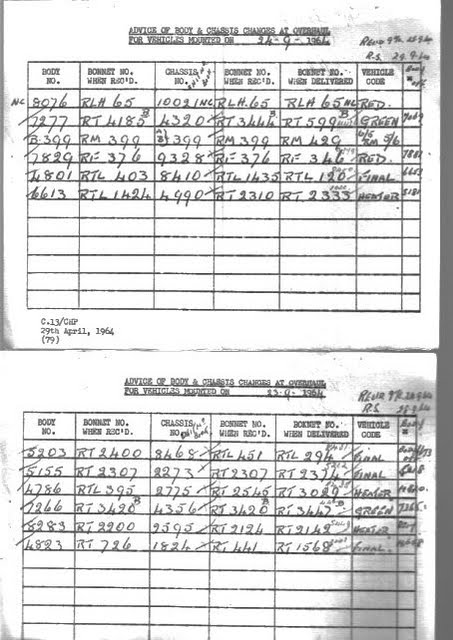 ADVICE OF BODY & CHASSIS CHANGES AT OVERHAUL
FOR VEHICLES MOUNTED ON 24-9-1964
R.S. 29.9.64
BODY NO. BONNET NO. WHEN REC'D. CHASSIS NO. BONNET NO. WHEN REC'D. BONNET NO. WHEN DELIVERED VEHICLE CODE
NC 8076 RLH 65 1002 NC RLH.65 RLH 65 NC RED.
7277 RT 4185 B 4320 RT 3444 B RT 599 B GREEN
B.399 RM 399 399 RM 399 RM 429 RM 5/6
7829 RF 376 9328 RF 376 RF 346 RED.
4801 RTL 403 8410 RTL 1435 RTL 120 FINAL
6613 RTL 1424 4990 RT 2310 RT 2333 HEATER
C.13/CHP
29th April, 1964
(79)
ADVICE OF BODY & CHASSIS CHANGES AT OVERHAUL
FOR VEHICLES MOUNTED ON 23-9-1964
R.S.
BODY NO. BONNET NO. WHEN REC'D. CHASSIS NO. BONNET NO. WHEN REC'D. BONNET NO. WHEN DELIVERED VEHICLE CODE
5203 RT 2400 8468 RTL 451 RTL 294 FINAL
5155 RT 2307 2273 RT 2307 RT 2374 FINAL
4786 RTL 395 2775 RT 2545 RT 3029 HEATER
7266 RT 3420 B 4356 RT 3420 B RT 3447 GREEN 7265
8283 RT 2200 9595 RT 2124 RT 2142 HEATER
4823 RT 726 1824 RT 441 RT 1568 FINAL.